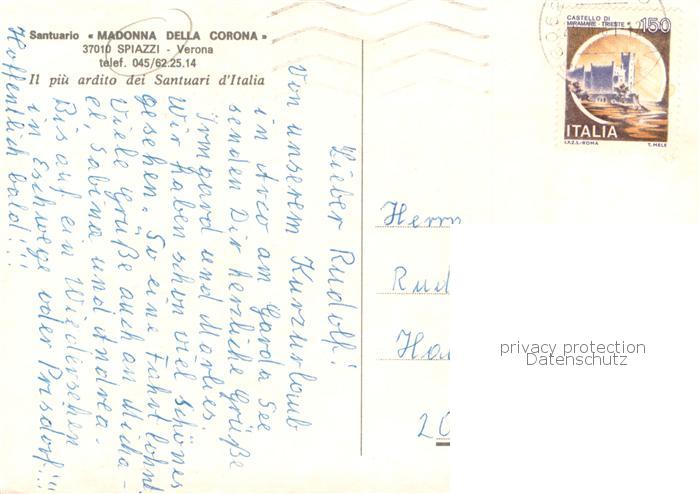 Santuario « MADONNA DELLA CORONA »
37010 SPIAZZI - Verona
telef. 045/62.25.14
Il più ardito dei Santuari d'Italia
Lieber Rudolf!
Von unserem Kurzurlaub
in Arco am Garda See
senden Dir herzliche Grüße
Irmgard und Marlies.
Wir haben schon viel schönes
gesehen. So eine Fahrt lohnt.
Viele Grüße auch an Micha-
el, Sabine und Andrea.
Bis auf ein Wiedersehen
in Eschwege oder Prasdorf!!!
Hoffentlich bald!!!
CASTELLO DI
MIRAMARE - TRIESTE
150
ITALIA
I.P.Z.S.-ROMA
T. MELE
Herrn
Rud
Ha
20
privacy protection
Datenschutz